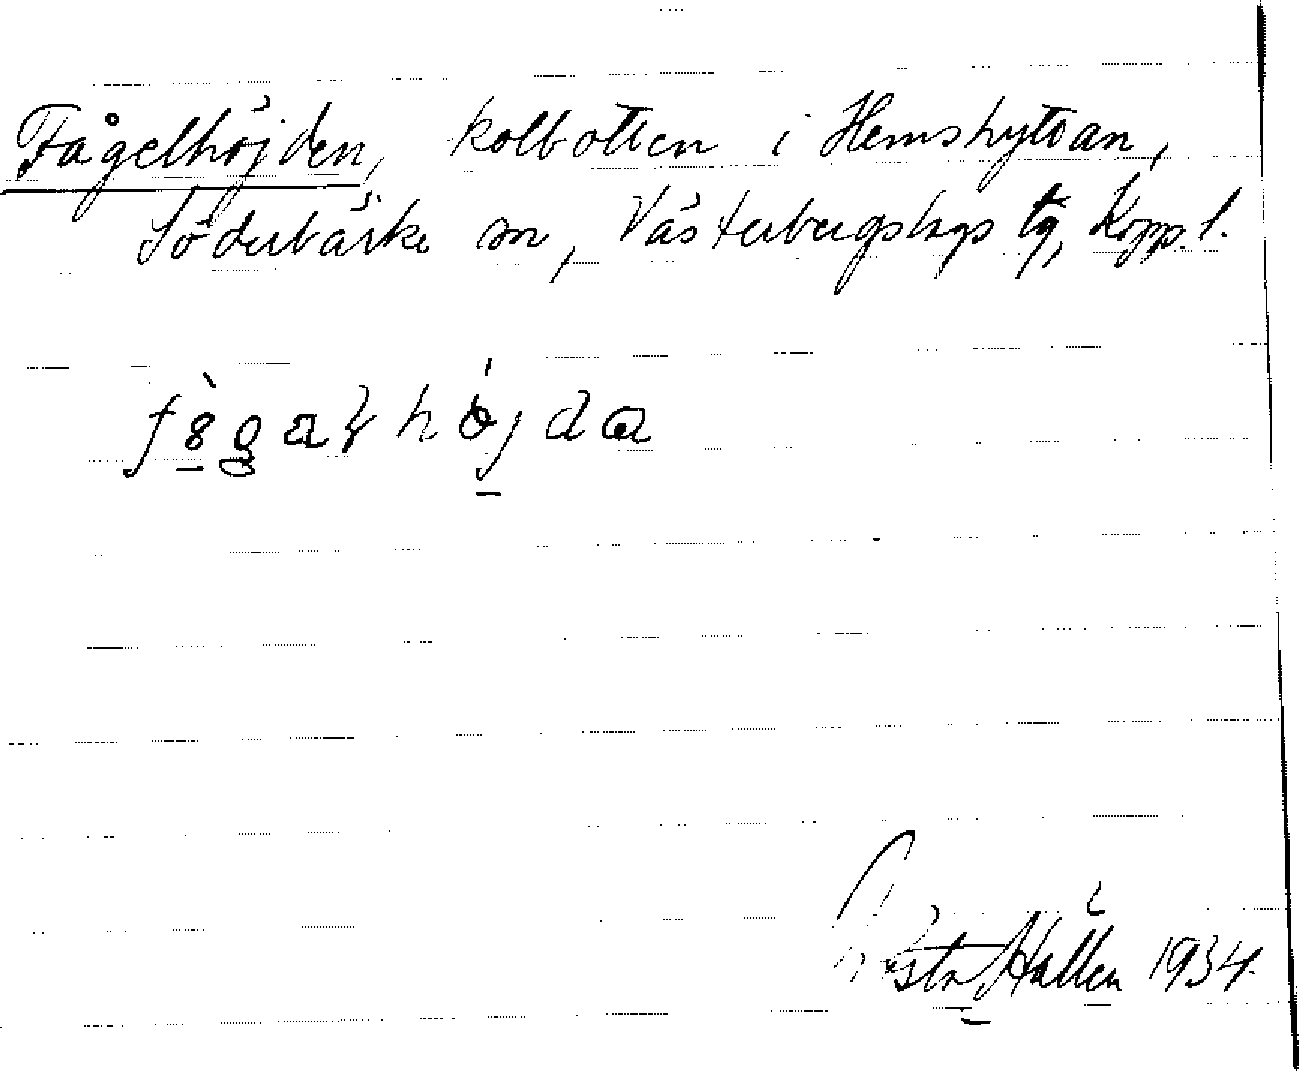 Fågelhöjden, kolbotten i Hemshyttan,
Söderbärke sn, Västerbergslags tg, Kopp. l.
Gösta Hallén 1934.